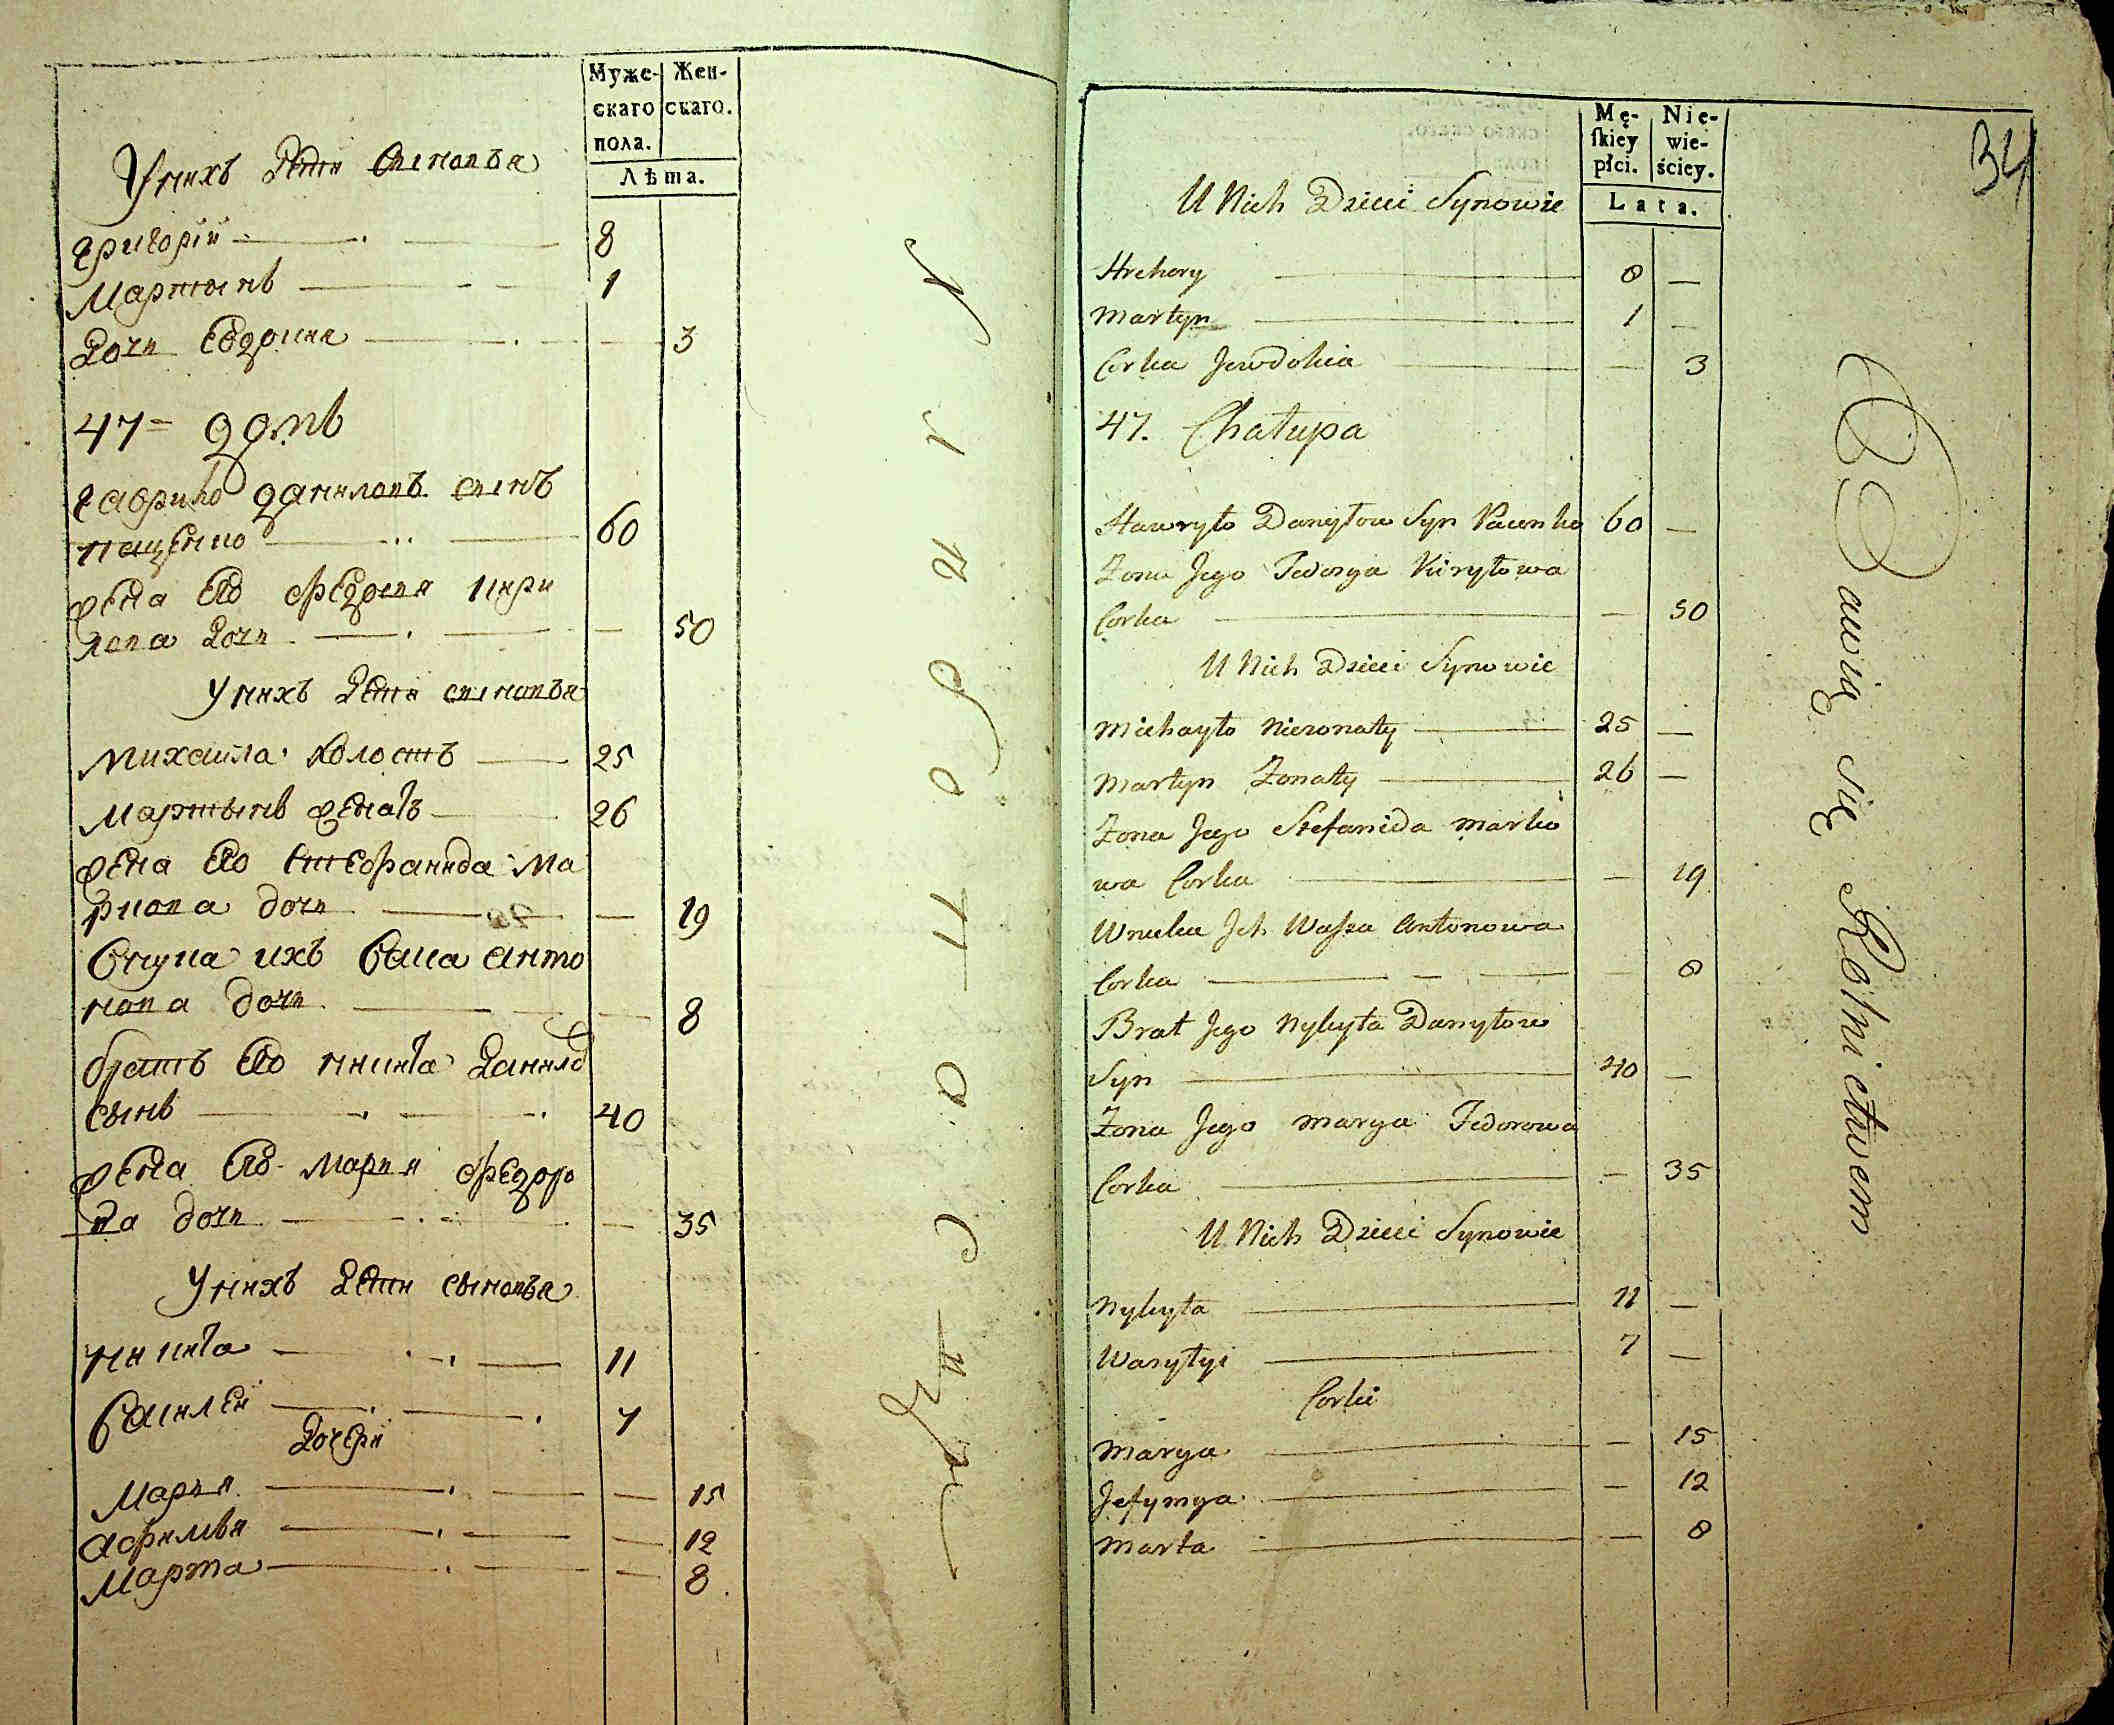 Муже-
скаго
пола.
Жен-
скаго.
Лѣта.
У нихъ дети сыновья
Григорій 8
Мартынъ 1
Дочь Евдокия 3
47 = домъ
Гаврило Даниловъ сынъ
60
жена Его Федосия Кири
лова дочь — 50
У нихъ дети сыновья
Михаила холостъ 25
Мартынъ женатъ 26
жена Его Стефанида Ма
ркова дочь — 19
Внука ихъ Васса Анто
нова дочь — 8
братъ Его Никита Данило
сынъ 40
жена Его Мария Федоро
ва дочь — 35
У нихъ дети сыновья
Никита 11
Василей 7
Дочери
Мария — 15
Афимья — 12
Марта — 8
Mę-
skiey
płci.
Nie-
wie-
ściey.
Lata.
34
U Nich Dzieci Synowie
Hrehory 8 —
Martyn 1 —
Corka Jewdokia — 3
47. Chałupa
Hawryło Danyłow Syn 60 —
Zona Jego Fedosya Kiryłowa
Corka — 50
U Nich Dzieci Synowie
Michayło Niezonaty 25 —
Martyn Zonaty 26 —
Zona Jego Stefanida Marko
wa Corka — 19
Wnuka Ich Wassa Antonowa
Corka — 8
Brat Jego Nykyta Danyłow
Syn 40 —
Zona Jego Marya Fedorowa
Corka — 35
U Nich Dzieci Synowie
Nykyta 11 —
Wasyłyi 7 —
Corki
Marya — 15
Jefymya — 12
Marta — 8
Bawią się Rolnictwem